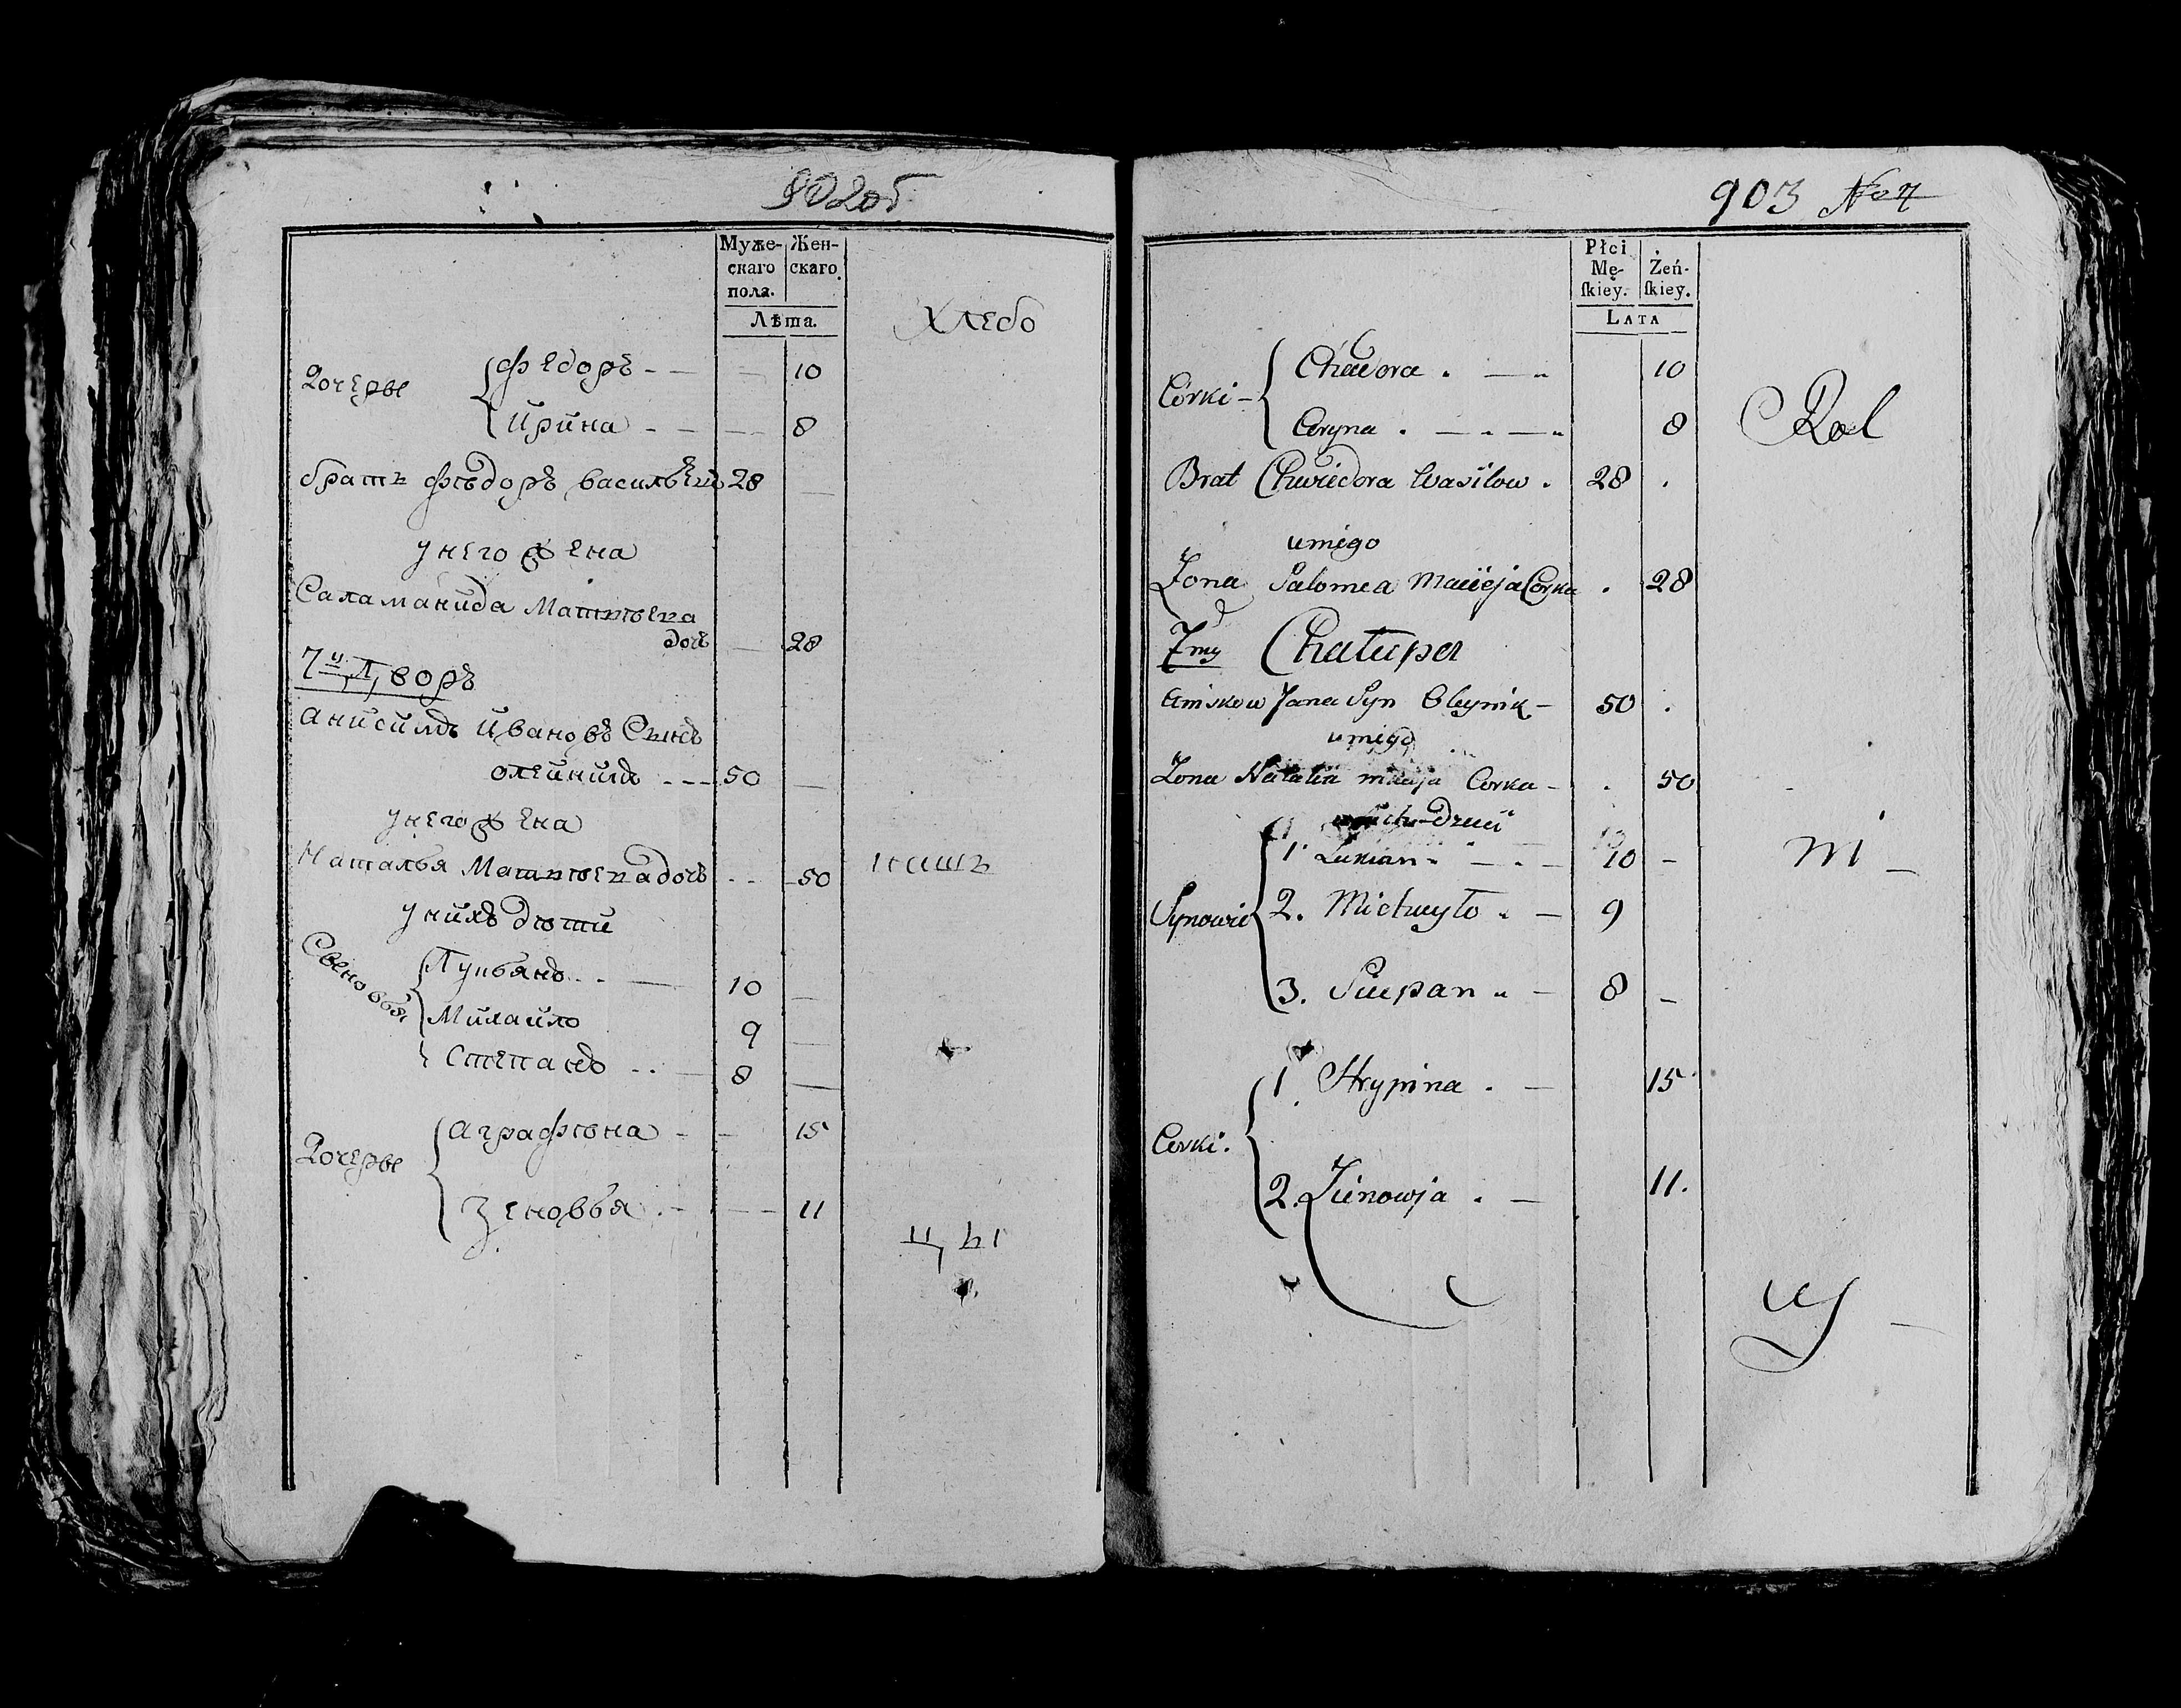 902об
Муже-
скаго
пола.
Жен-
скаго
Лѣта.
Хлебо
Дочерье
Федоръ - — — 10
Ирина - — — 8
братъ Фѣдоръ васильевъ 28 —
унего жена
Саламанида Матвѣева
дочь — 28
7й Дворъ
Анисимъ Ивановъ Сынъ
олейникъ - - - 50 —
унего жена
Наталья Матвѣева дочь - - 50
пашъ
унихъ дѣти
Сыновья
Лукьянъ . . — 10 —
Михайло 9 —
Степанъ . . — 8 —
Дочерье
Аграфѣна - - 15
Зеновья . - — - 11
цы
903 № 7
Płci
Mę-
skiey.
Żeń-
skiey.
LATA
Corki -
Chwedora . — „ 10
Oryna . — „ — „ 8
Rol
Brat Chwiedora Wasilow . 28 .
uniego
Zona Salomea Macieja Corka . 28
7my Chałupa
Jana Syn Oleynik - 50 .
uniego
Zona Natalia Corka - . 50
Synowie
1. Lukian „ — „ — 10 -
ni -
2. Michayło „ — 9
3. Sciepan „ — 8 -
Corki.
1. Hrypina . — 15
2. Zienowja . — 11.
cy -